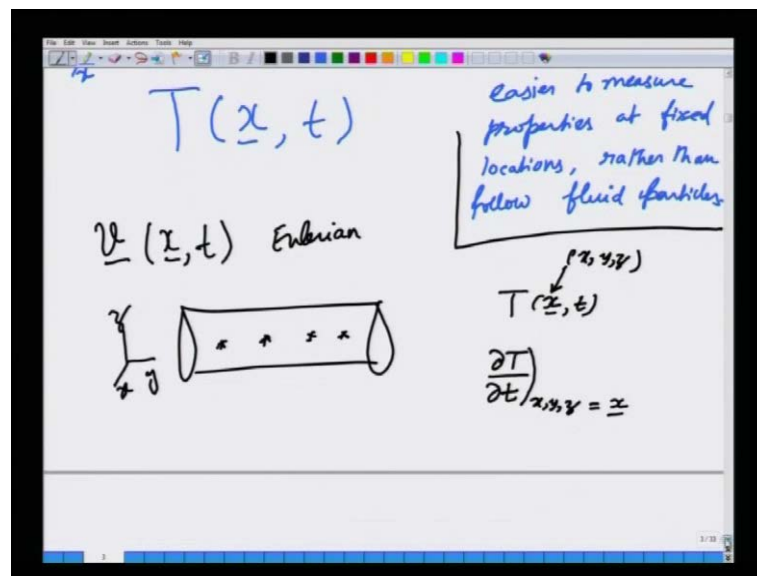 File Edit View Insert Actions Tools Help
B I
T(x, t)
easier to measure
properties at fixed
locations, rather than
follow fluid particles
v (x, t) Eulerian
(x, y, z)
T(x, t)
z
x y
∂T/∂t)x,y,z = x
3/33
3